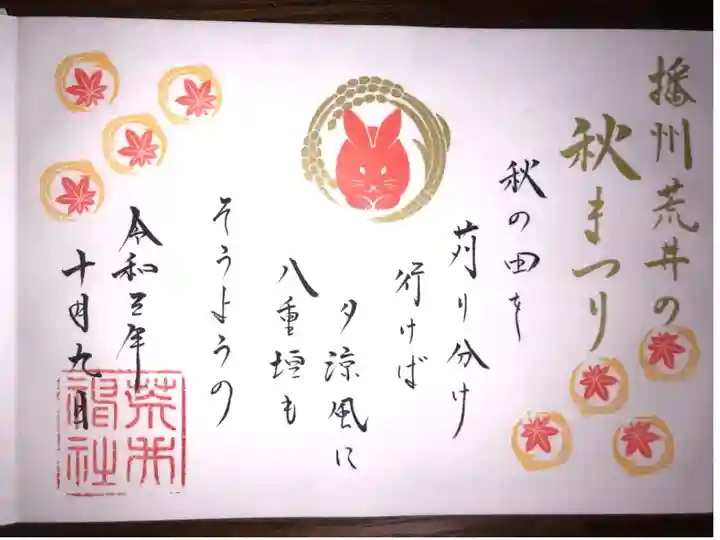 播州荒井の
秋まつり
秋の田を
苅り分け
行けば
夕涼風に
八重垣も
そうようの
令和三年
十月九日
荒井
神社